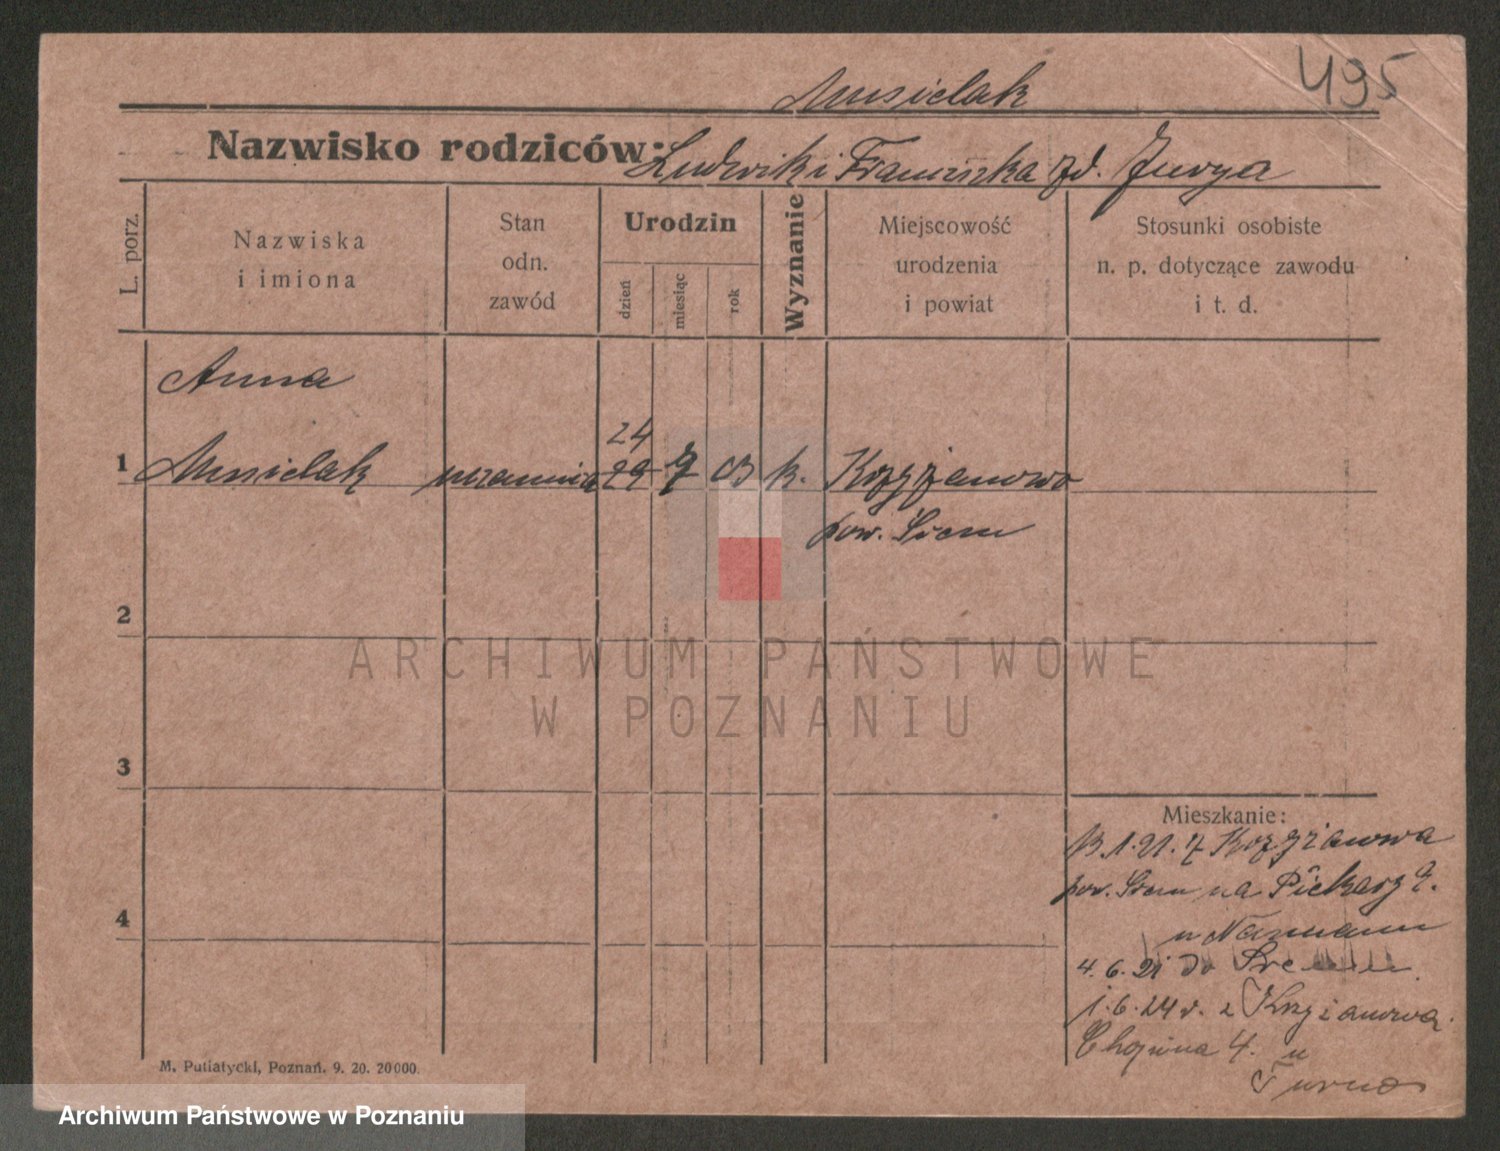 495
Musielak
Nazwisko rodziców: Ludwik i Franciszka zd. Jurga
L. porz.
Nazwiska
i imiona
Stan
odn.
zawód
Urodzin
dzień
miesiąc
rok
Wyznanie
Miejscowość
urodzenia
i powiat
Stosunki osobiste
n. p. dotyczące zawodu
i t. d.
Anna
24
1 Musielak uczennica 29 7 03 k. Krzyżanowo
pow. Śrem
2
ARCHIWUM PAŃSTWOWE
W POZNANIU
3
Mieszkanie:
1.21. z Krzyżanowa
pow. Śrem na Piekary
4
u
4.6.21 do
1.6.24 r. z Krzyżanowa
4. u
Turno
M. Putiatycki, Poznań. 9. 20. 20000.
Archiwum Państwowe w Poznaniu